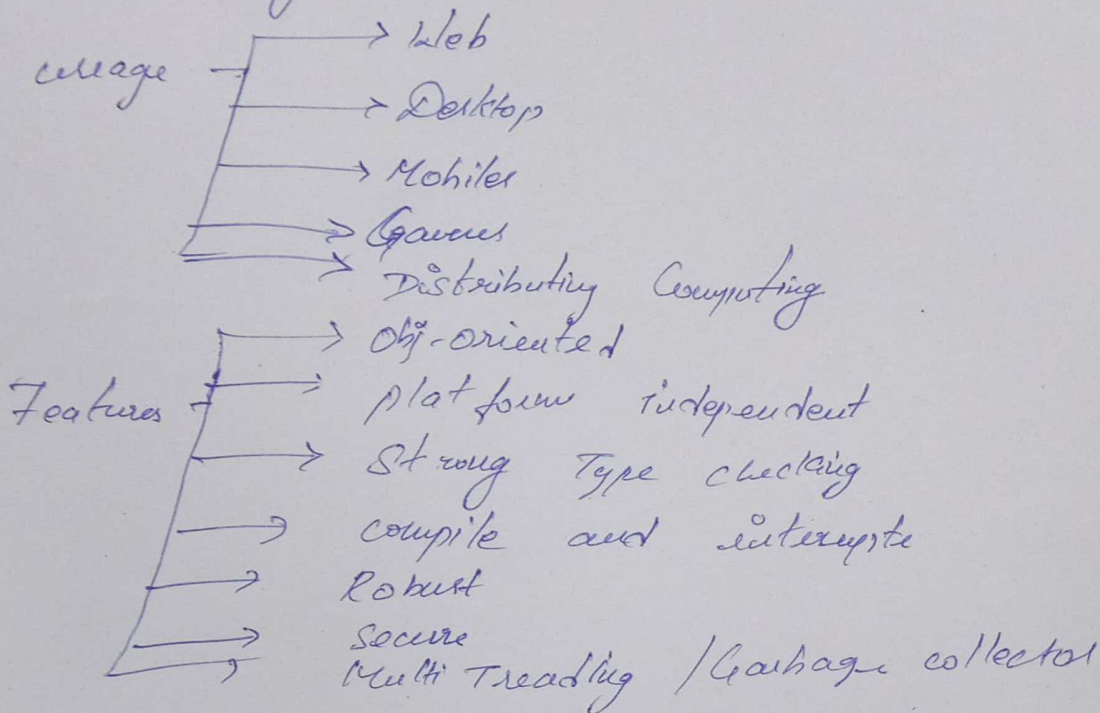 Usage
Web
Desktop
Mobiles
Games
Distributing Computing
Features
Obj-oriented
platform independent
Strong Type checking
compile and
Robust
Secure
Multi Treading / Garbage collector